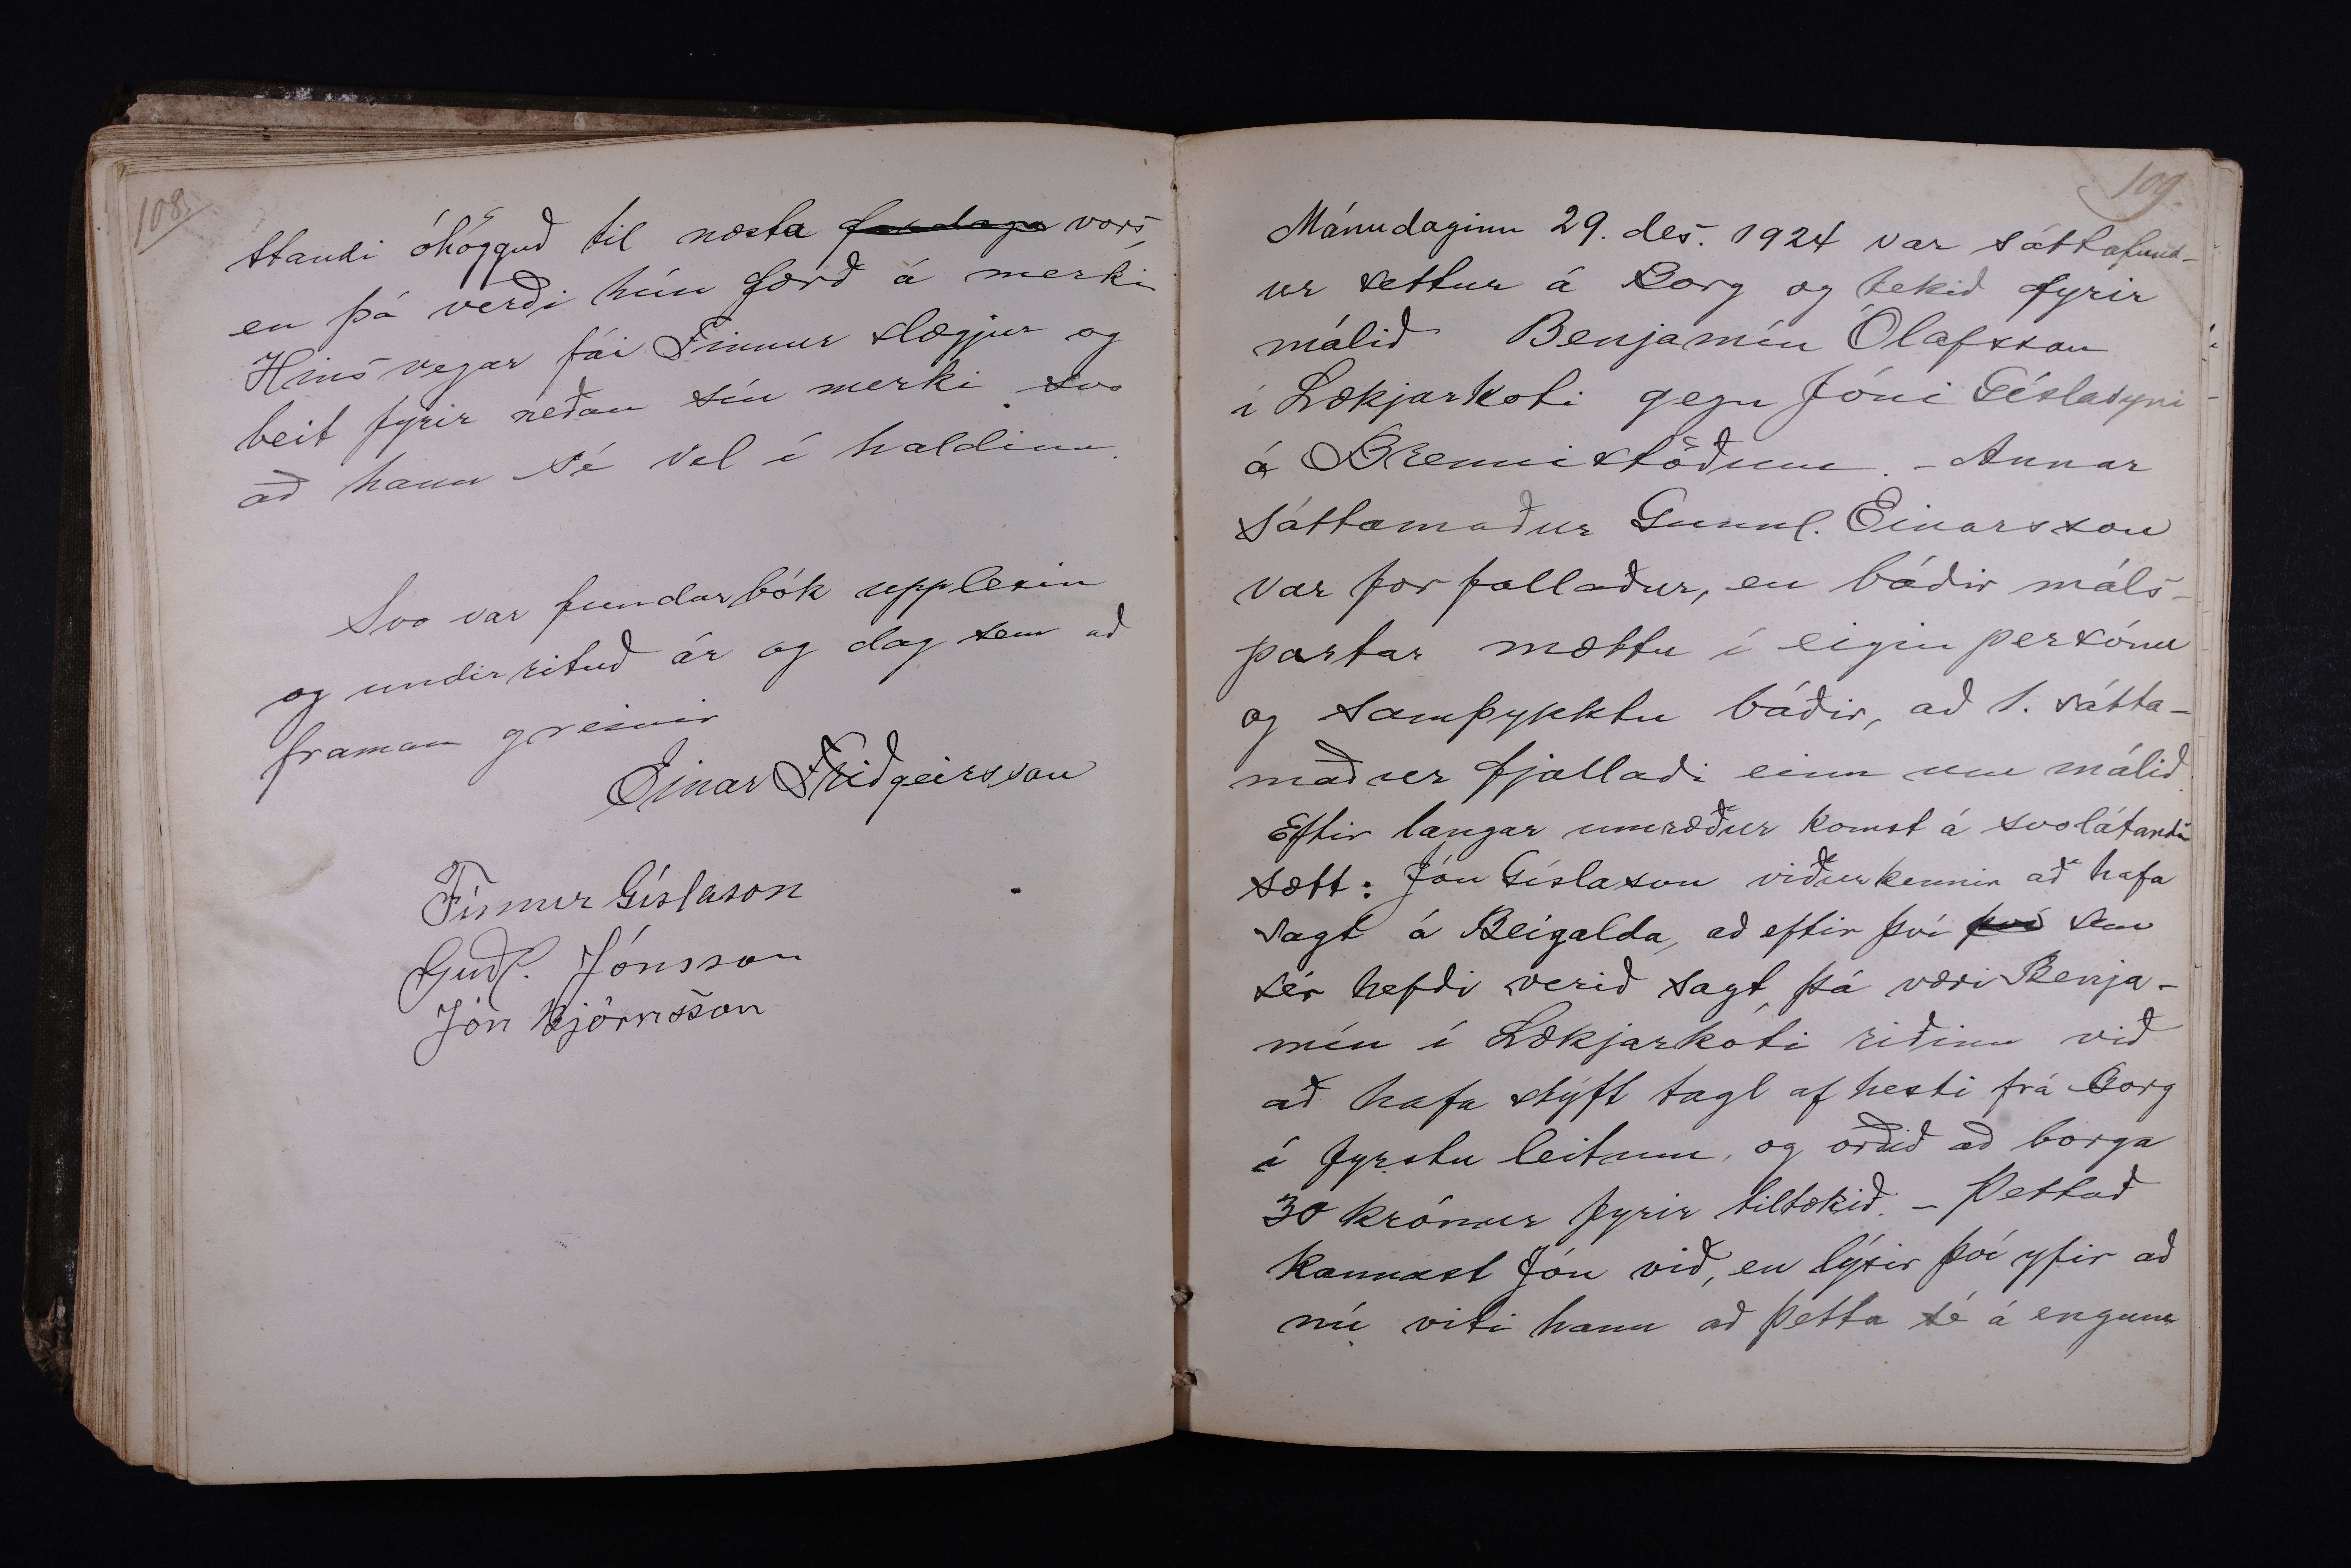 108.
standi óhögguð til næsta fardaga vors,
en þá verði hún færð á merki
Hins vegar fái Finnur slægjur og
beit fyrir neðan sín merki svo
að hann sé vel í haldinn.
Svo var fundarbók upplesin
og undirrituð ár og dag sem að
framan greinir
Einar Friðgeirsson
Finnur Gíslason
Guðl. Jónsson
Jón Björnsson
109.
Mánudaginn 29. des. 1924 var sáttafund-
ur settur á Borg og tekið fyrir
málið Benjamín Ólafsson
í Lækjarkoti gegn Jóni Gíslasyni
á Brennistöðum. - Annar
sáttamaður Gunnl. Einarsson
var forfallaður, en báðir máls-
partar mættu í eigin persónu
og samþykktu báðir, að 1. sátta-
maður fjallaði einn um málið.
Eftir langar umræður komst á svolátandi
sætt: Jón Gíslason viðurkennir að hafa
sagt á Beigalda, að eftir því því sem
sér hefði verið sagt, þá væri Benja-
mín í Lækjarkoti riðinn við
að hafa stýft tagl af hesti frá Borg
í fyrstu leitum, og orðið að borga
30 krónur fyrir tiltækið. - Þettað
kannast Jón við, en lýsir því yfir að
nú viti hann að þetta sé á engum